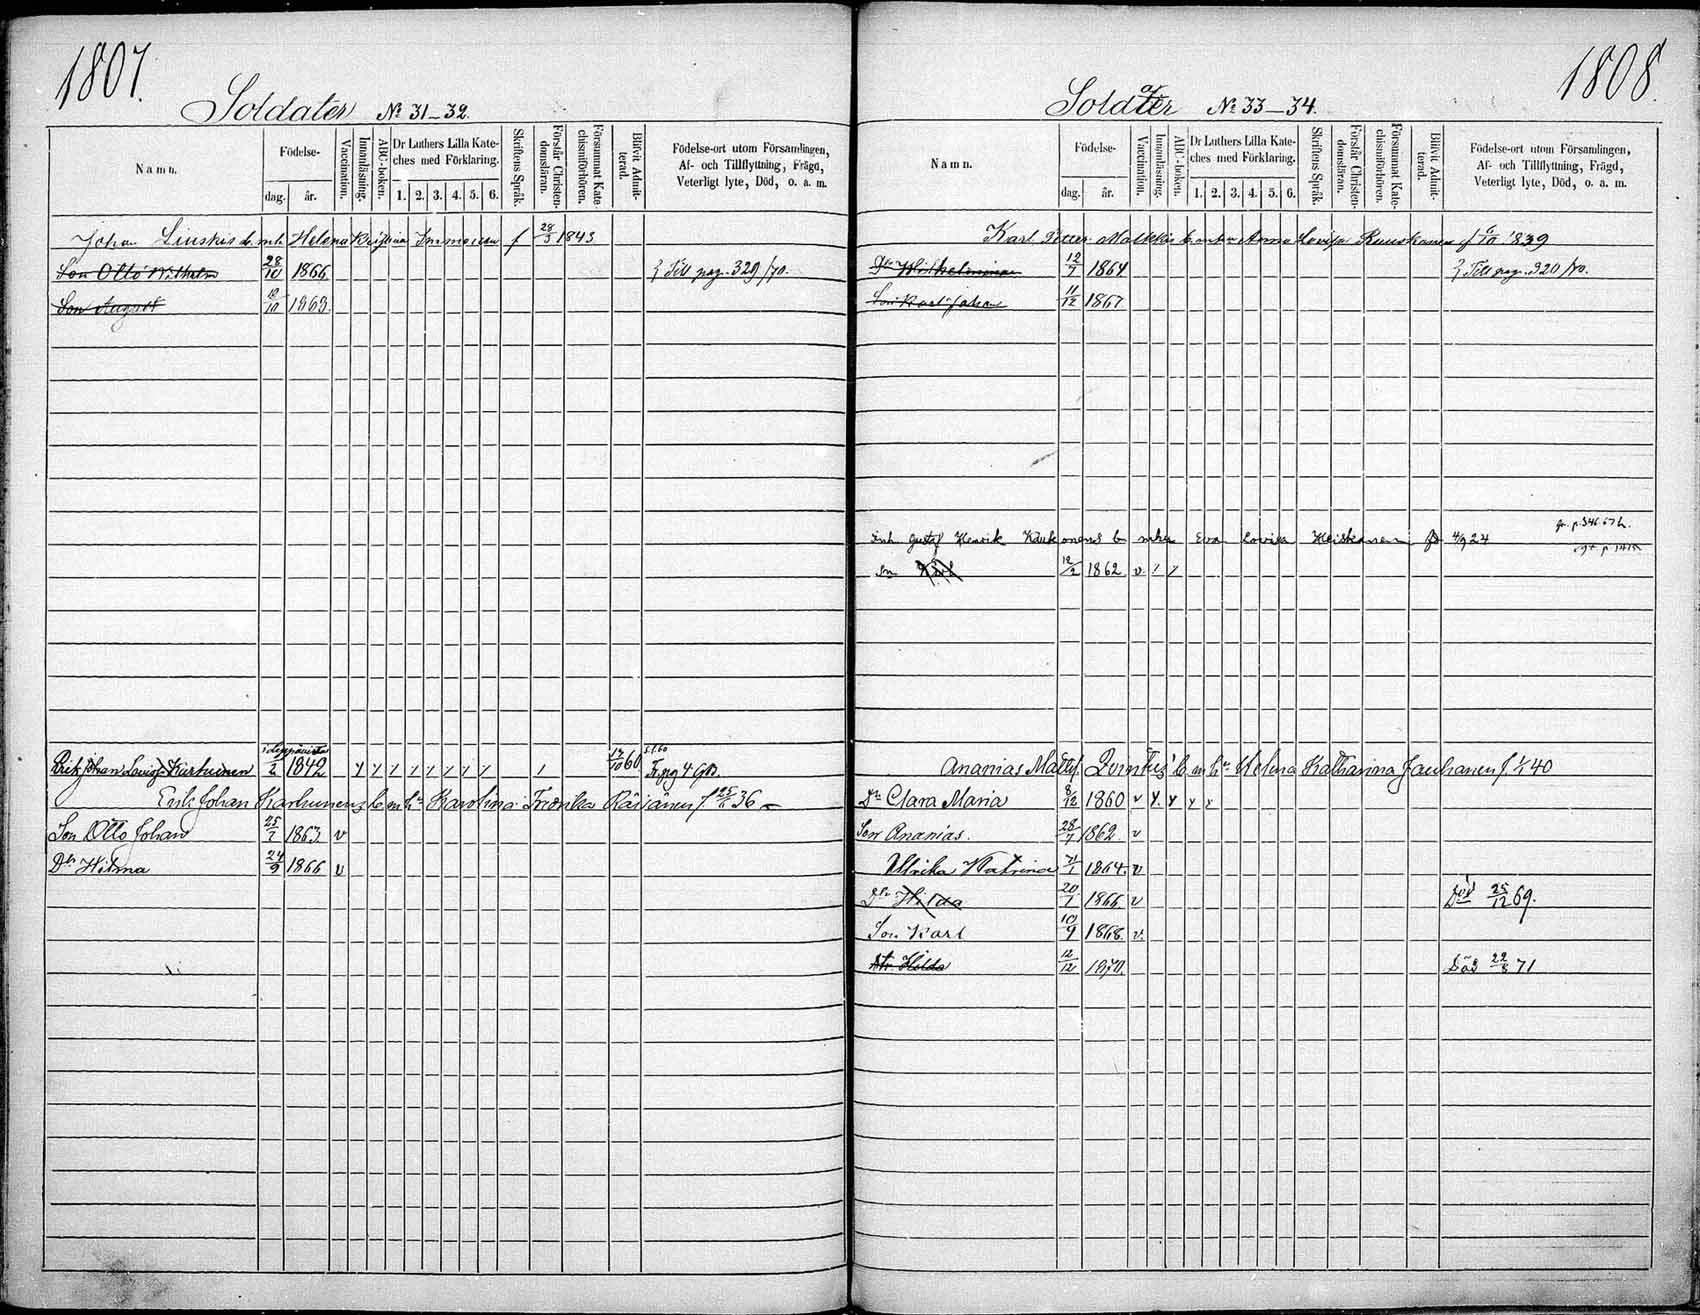 1807.
Soldater № 31-32.
Namn.
Födelse-
dag. år.
Vaccination.
Innanläsning.
ABC-boken.
Dr Luthers Lilla Kate-
ches med Förklaring.
1. 2. 3. 4. 5. 6.
Skriftens Språk.
Förstår Christen-
domsläran.
Försummat Kate-
chismiförhören.
Blifvit Admit-
terad.
Födelse-ort utom Församlingen,
Af- och Tillflyttning, Frägd,
Veterligt lyte, Död, o. a. m.
Johan b. mh Helena f 28/3 1843
Son Otto Wilhelm 28/10 1866 Till pag. 329/70.
Son August 12/10 1869.
Erik Johan Karhunen 2 1842 y y 1 1 1 1 1 1 1 60
Erik Johan Karhunens b. m h Karolina Fredrika Räisänen f 25 36
Son Otto Johan 25/7 1863. v
Dr Hilma 24/9 1866 v
1808.
Soldater № 33-34.
Namn.
Födelse-
dag. år.
Vaccination.
Innanläsning.
ABC-boken.
Dr Luthers Lilla Kate-
ches med Förklaring.
1. 2. 3. 4. 5. 6.
Skriftens Språk.
Förstår Christen-
domsläran.
Försummat Kate-
chismiförhören.
Blifvit Admit-
terad.
Födelse-ort utom Församlingen,
Af- och Tillflyttning, Frägd,
Veterligt lyte, Död, o. a. m.
Karl Petter b. Anna Lovisa Ruuskanen f 6/10 1839
Dr Wilhelmina 12/7 1864 Till pag. 320/70.
Son Karl Johan 11/12 1867
Gustaf Henrik b mha Eva Lovisa Heiskanen 4/9 24
Son Karl 12/2 1862 v 1 y
Ananias b. m h Helena Katharina Jauhanen f. 1/1 40
Dr Clara Maria 8/12 1860 v y. y y x
Son Ananias. 28/7 1862 v
Ulrika Katrina 1864. v
Dr Hilda 20/1 1866 v Död 25/12 69.
Son Karl 10/9 1868. v.
Dr Hilda 12/12 1870. Död 22/3 71